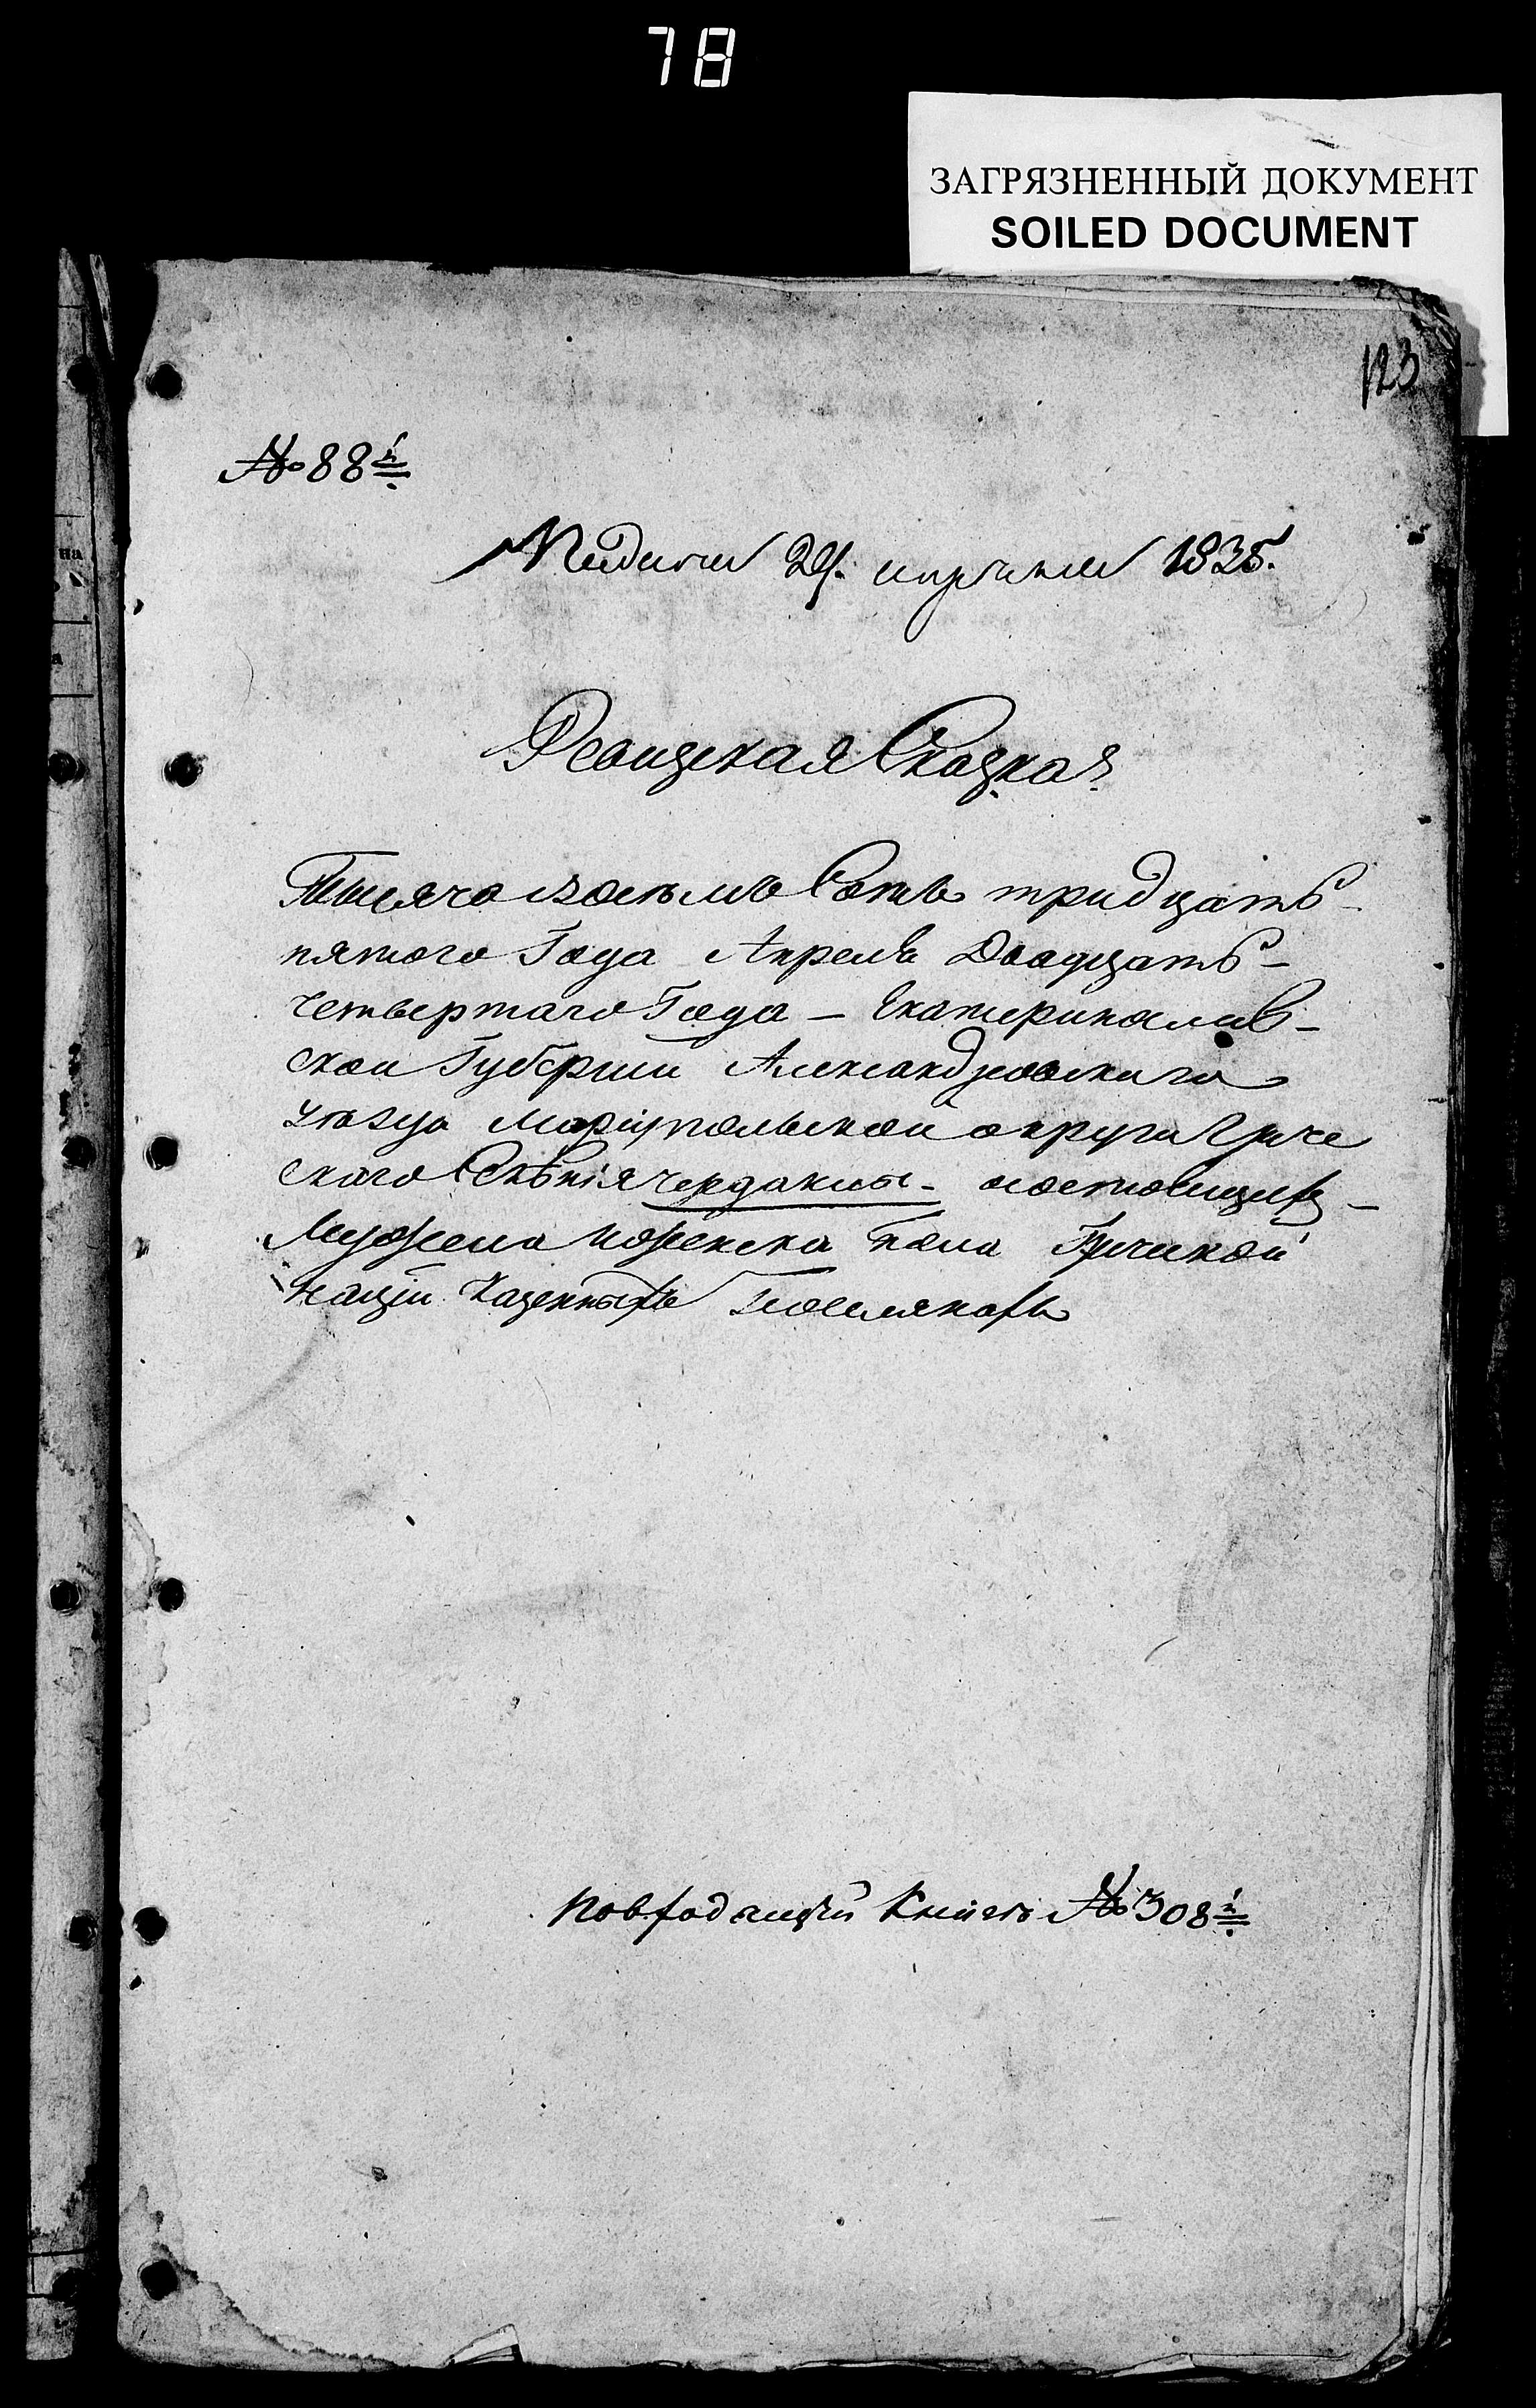 78
ЗАГРЯЗНЕННЫЙ ДОКУМЕНТ
SOILED DOCUMENT
123
№ 88й
24. апреля 1835.
Ревизская Сказка
Тысяча восемь Сотъ тридцать
пятого Года Апреля Двадцать
четвертаго Года – Екатеринослав-
ской Губернии Александровскаго
уезда Мариупольской округи Грече
скаго Селѣнія чердаклы – состоящихъ –
Мужеска Женска пола Греческой
нации Казенныхъ Поселянахъ
на
а
Повходящей Книге № 308й